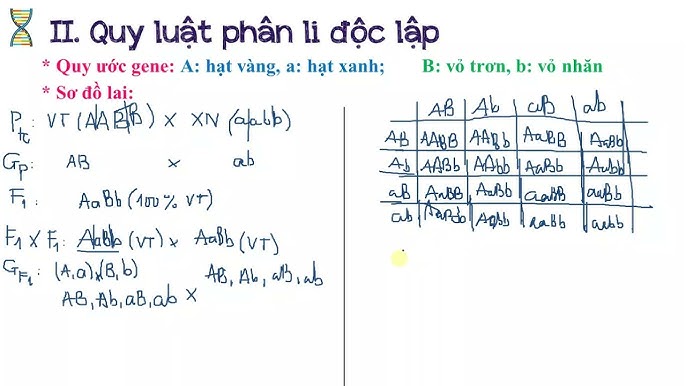 II. Quy luật phân li độc lập
* Quy ước gene: A: hạt vàng, a: hạt xanh; B: vỏ trơn, b: vỏ nhăn
* Sơ đồ lai:
Ptc: VT (AABB) x XN (aabb)
GP: AB x ab
F1: AaBb (100% VT)
F1 x F1: AaBb (VT) x AaBb (VT)
GF1: (A,a)(B,b) AB, Ab, aB, ab
AB, Ab, aB, ab x
AB Ab aB ab
AB AABB AABb AaBB AaBb
Ab AABb AAbb AaBb Aabb
aB AaBB AaBb aaBB aaBb
ab AaBb Aabb aaBb aabb